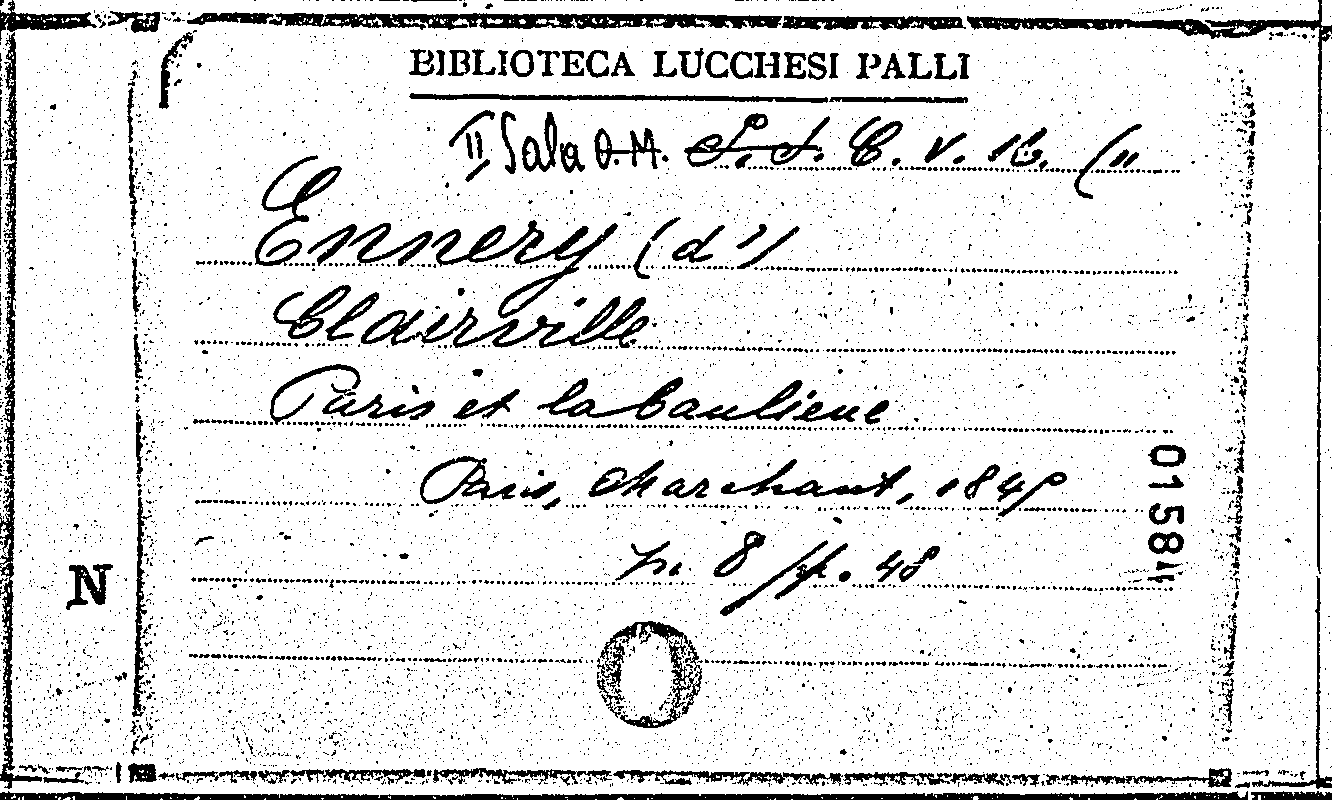 BIBLIOTECA LUCCHESI PALLI
II Sala O.M. S.J. C. V. 16. (11
Ennery (d')
Clairville
Paris et la banlieue
Paris, Marchant, 184
01584
in 8 pp. 48
N